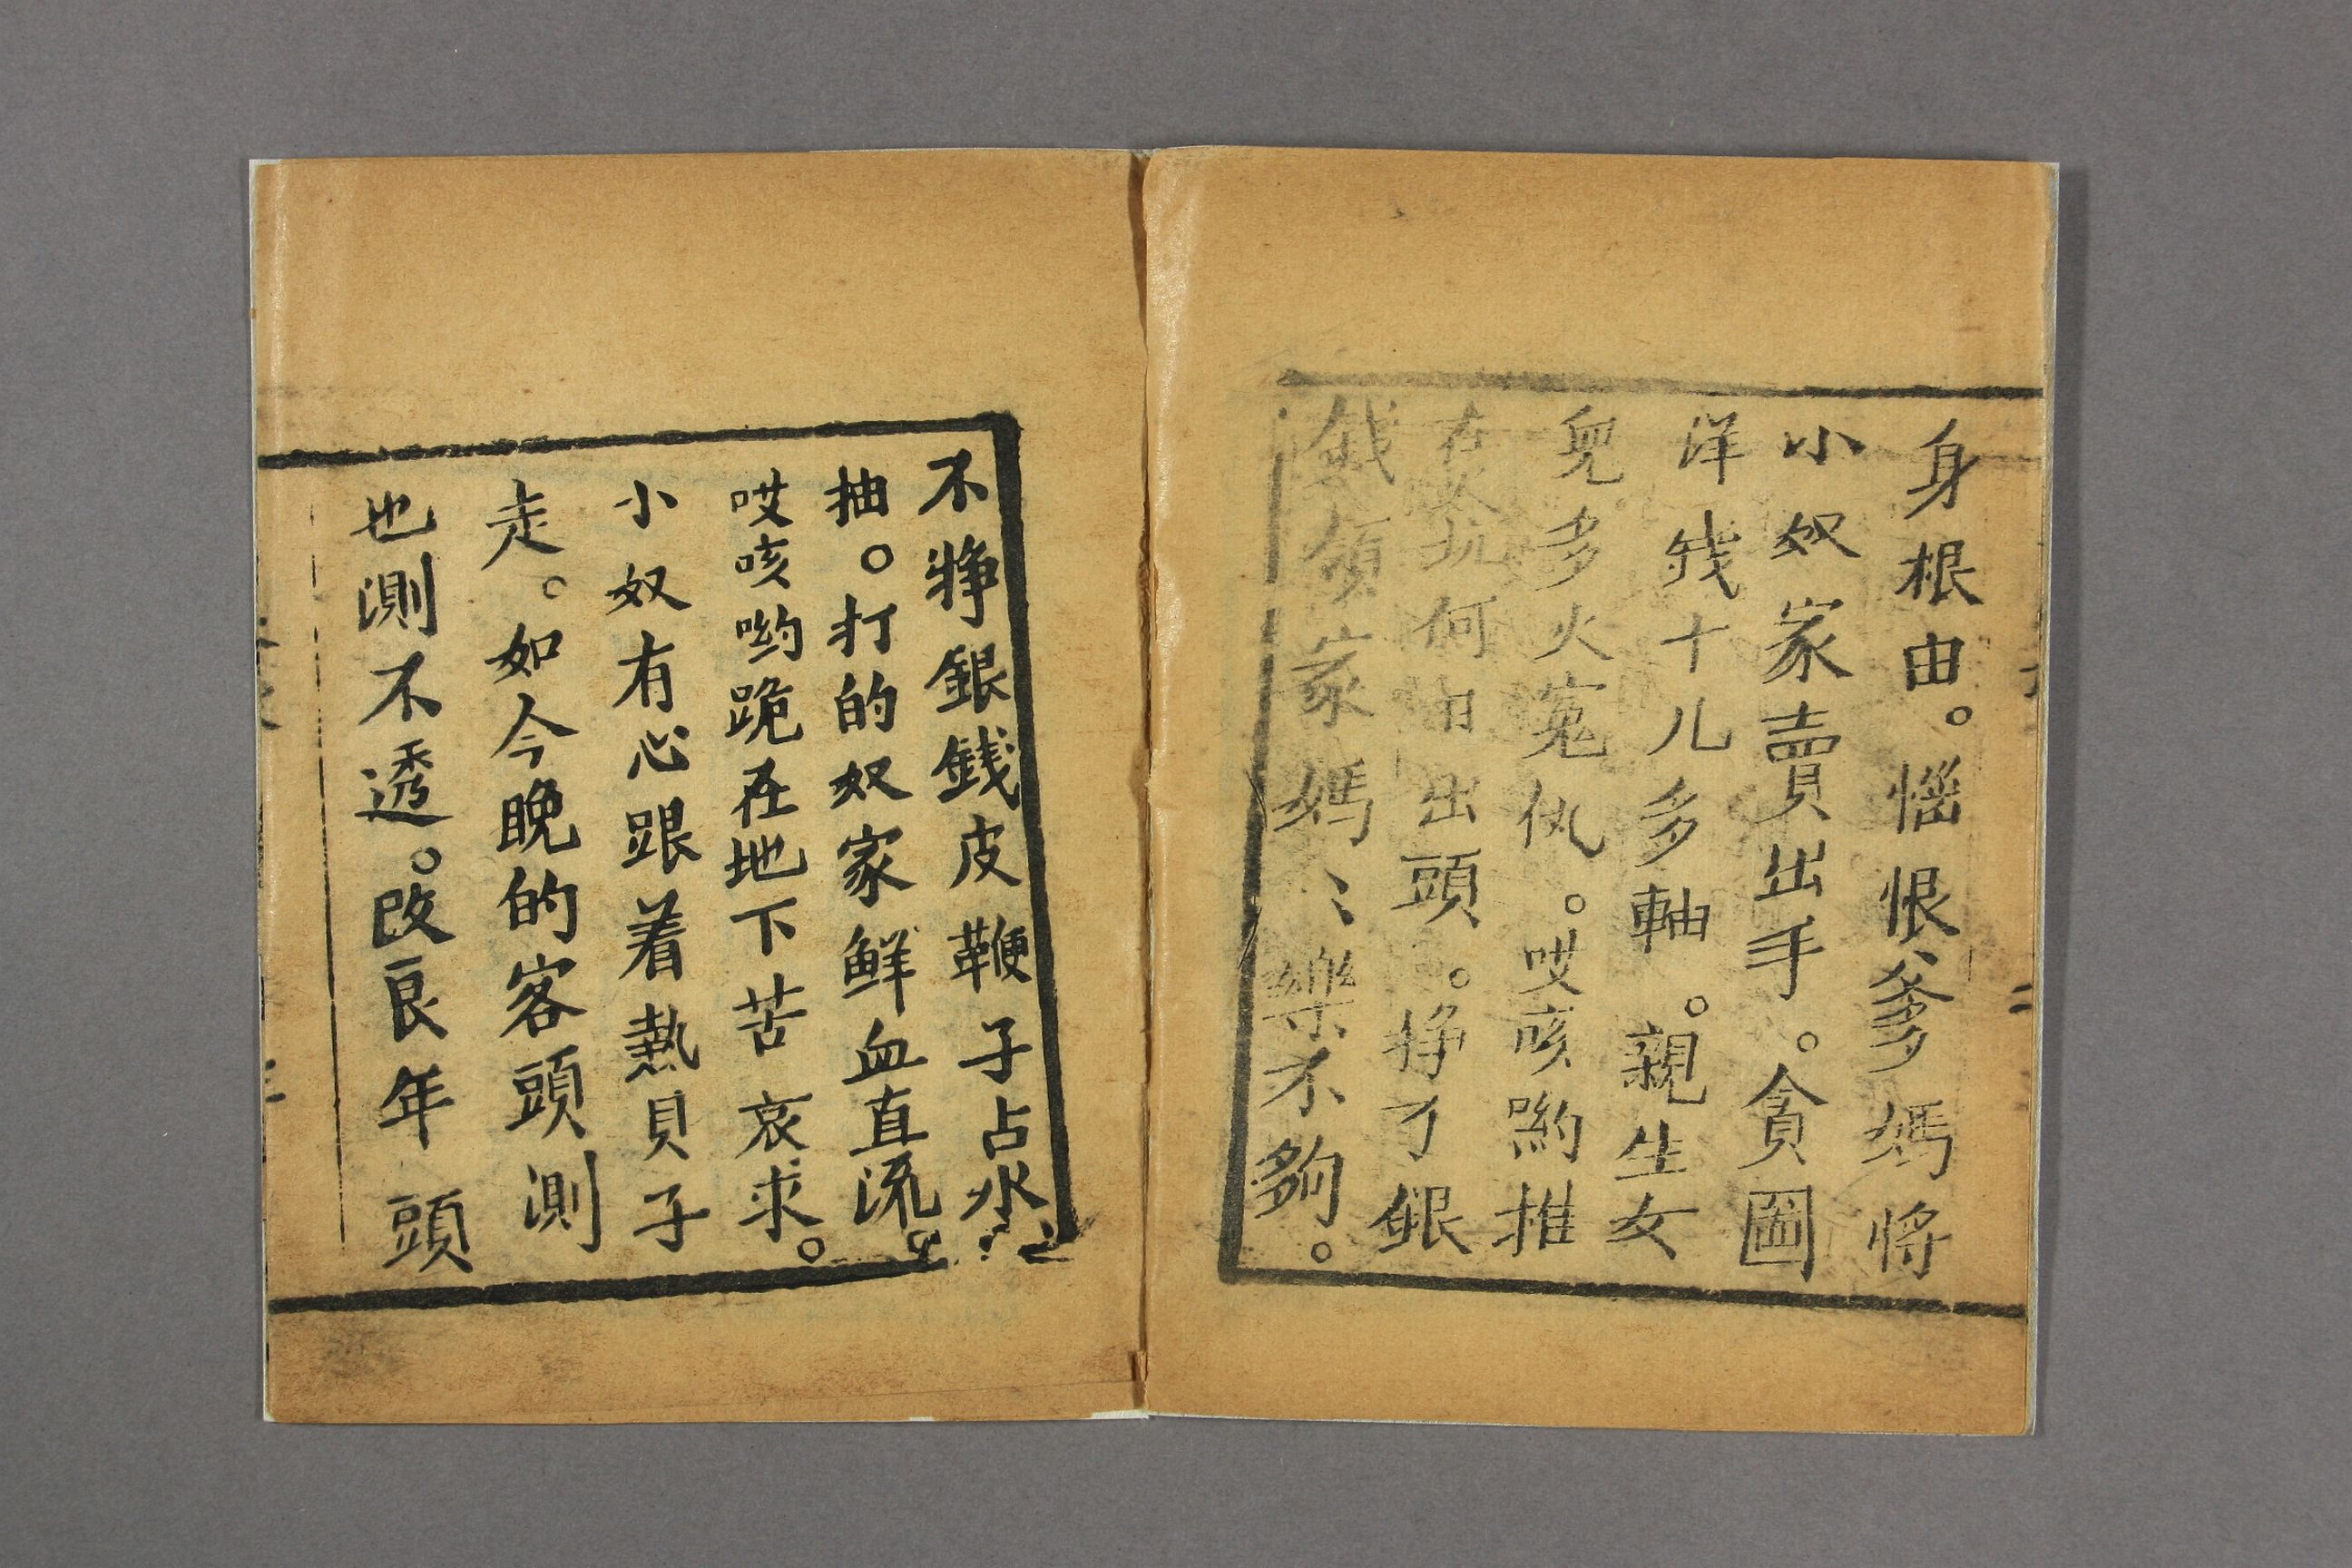 身根由。惱恨爹媽將
小奴家賣出手。貪圖
洋戋十儿多軸。親生女
兒多火寃仇。哎咳喲推
在火坑何由出頭。挣了銀
戋領家媽〻樂不夠。
不掙銀錢皮鞭子占水
抽。打的奴家鲜血直流。
哎咳哟跪在地下苦哀求。
小奴有心跟着熱貝子
走。如今晚的客頭測
也測不透。改良年頭